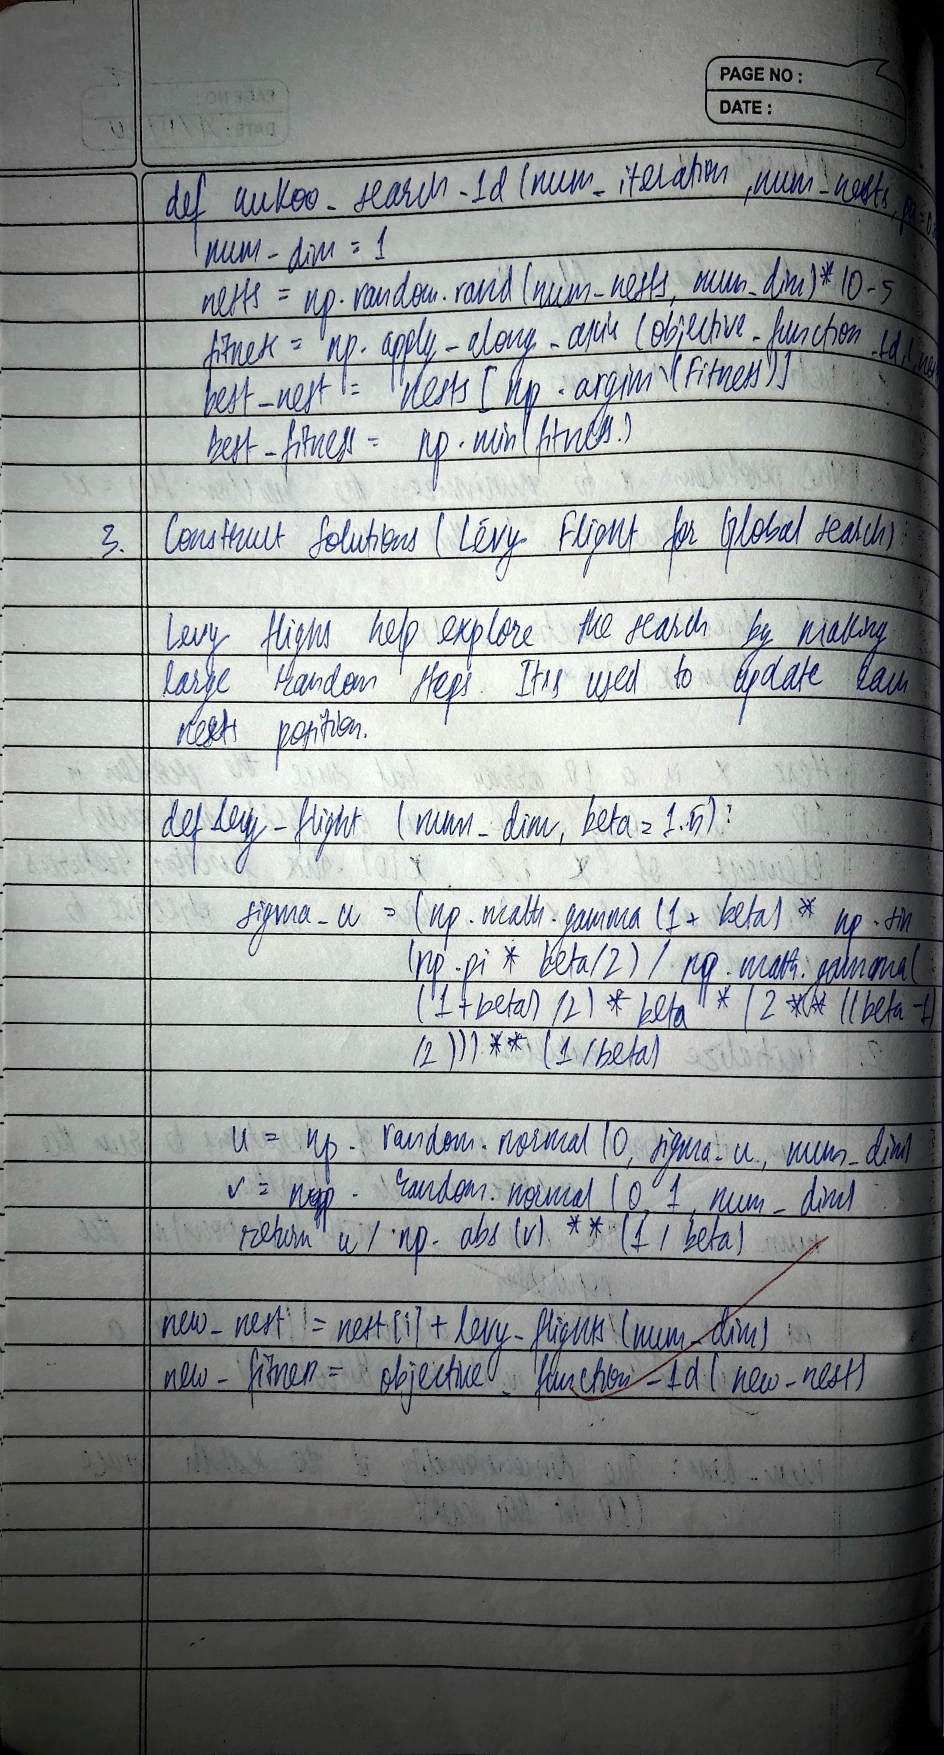 PAGE NO :
DATE :
def cukoo_search_1d (num_iteration, num_nests, pa=0.
num_dim = 1
nests = np.random.rand(num_nests, num_dim)*10-5
fitness = np.apply_along_axis (objective_function_1d, 1, nes
best_nest = nests [np.argim (fitness)]
best_fitness = np.min(fitness.)
3. Construct Solutions (Lévy Flight for Global search):
Levy flighs help explore the search by making
large random steps. It is used to update each
nests position.
def levy_flight (num_dim, beta = 1.5):
sigma_u = (np.math.gamma (1+ beta) * np.sin
(np.pi * beta/2) / np.math.gamma(
(1+beta) /2) * beta * (2 ** ((beta -1)
/2))) ** (1/beta)
u = np.random.normal (0, sigma_u, num_dim)
v = np.random.normal (0, 1, num_dim)
return u / np.abs (v) ** (1 / beta)
new_nest = nest[i] + levy_flights (num_dim)
new_fitness = objective_function_1d (new_nest)